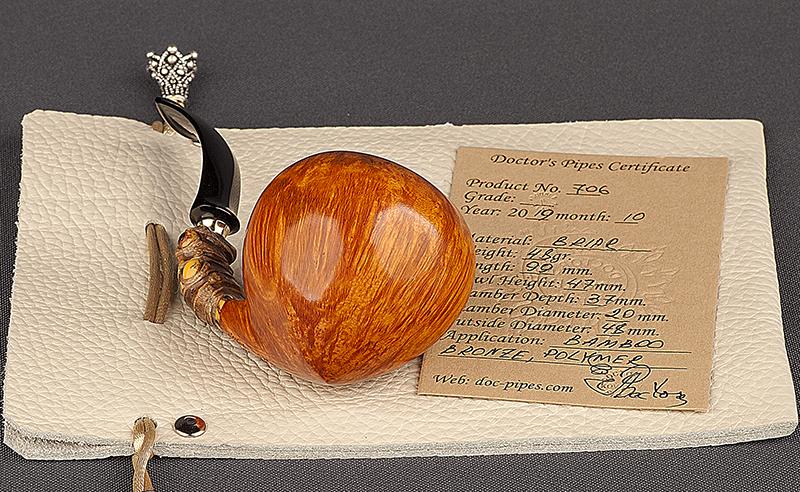 Doctor's Pipes Certificate
Product No. 706
Grade:
Year: 2019 month: 10
aterial: BRIAR
eight: 43gr.
ngth: 99 mm.
owl Height: 47mm.
amber Depth: 37mm.
amber Diameter: 20 mm.
utside Diameter: 48 mm.
Application: BAMBOO
BRONZE, POLYMER
Web: doc-pipes.com